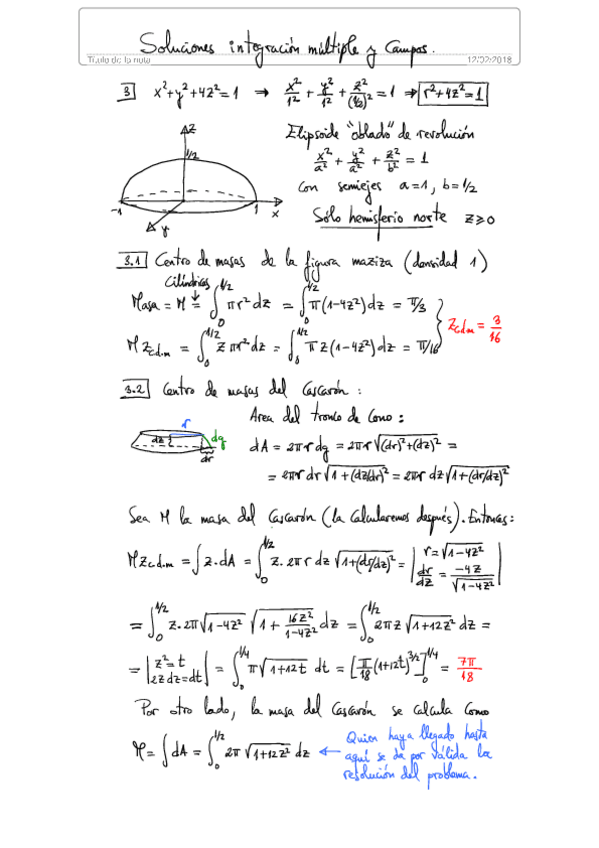 Soluciones integración múltiple y Campos.
Título de la nota
12/02/2018
3 x²+y²+4z²=1 → x²/1² + y²/1² + z²/(1/2)² = 1 ⇒ r²+4z²=1
Elipsoide "oblado" de revolución
x²/a² + y²/a² + z²/b² = 1
con semiejes a=1, b=1/2
Sólo hemisferio norte z≥0
z
1/2
-1
1
x
y
3.1 Centro de masas de la figura maziza (densidad 1)
Cilíndricas
Masa = M = ∫₀^{1/2} πr² dz = ∫₀^{1/2} π(1-4z²)dz = π/3
z_{c.d.m} = 3/16
M z_{c.d.m} = ∫₀^{1/2} z πr² dz = ∫₀^{1/2} π z(1-4z²)dz = π/16
3.2 Centro de masas del Cascarón:
Area del tronco de Cono:
r
dz
dg
dr
dA = 2πr dg = 2πr √((dr)²+(dz)²) =
= 2πr dr √(1+(dz/dr)²) = 2πr dz √(1+(dr/dz)²)
Sea M la masa del Cascarón (la calcularemos después). Entonces:
M z_{c.d.m} = ∫ z·dA = ∫₀^{1/2} z·2πr dz √(1+(dr/dz)²) = | r=√(1-4z²) dr/dz = -4z/√(1-4z²) |
= ∫₀^{1/2} z·2π√(1-4z²) √(1+16z²/(1-4z²)) dz = ∫₀^{1/2} 2πz √(1+12z²) dz =
= | z²=t 2z dz=dt | = ∫₀^{1/4} π√(1+12t) dt = [π/18 (1+12t)^{3/2}]₀^{1/4} = 7π/18
Por otro lado, la masa del Cascarón se calcula como
M = ∫ dA = ∫₀^{1/2} 2π √(1+12z²) dz ←
Quien haya llegado hasta
aquí se da por válida la
resolución del problema.